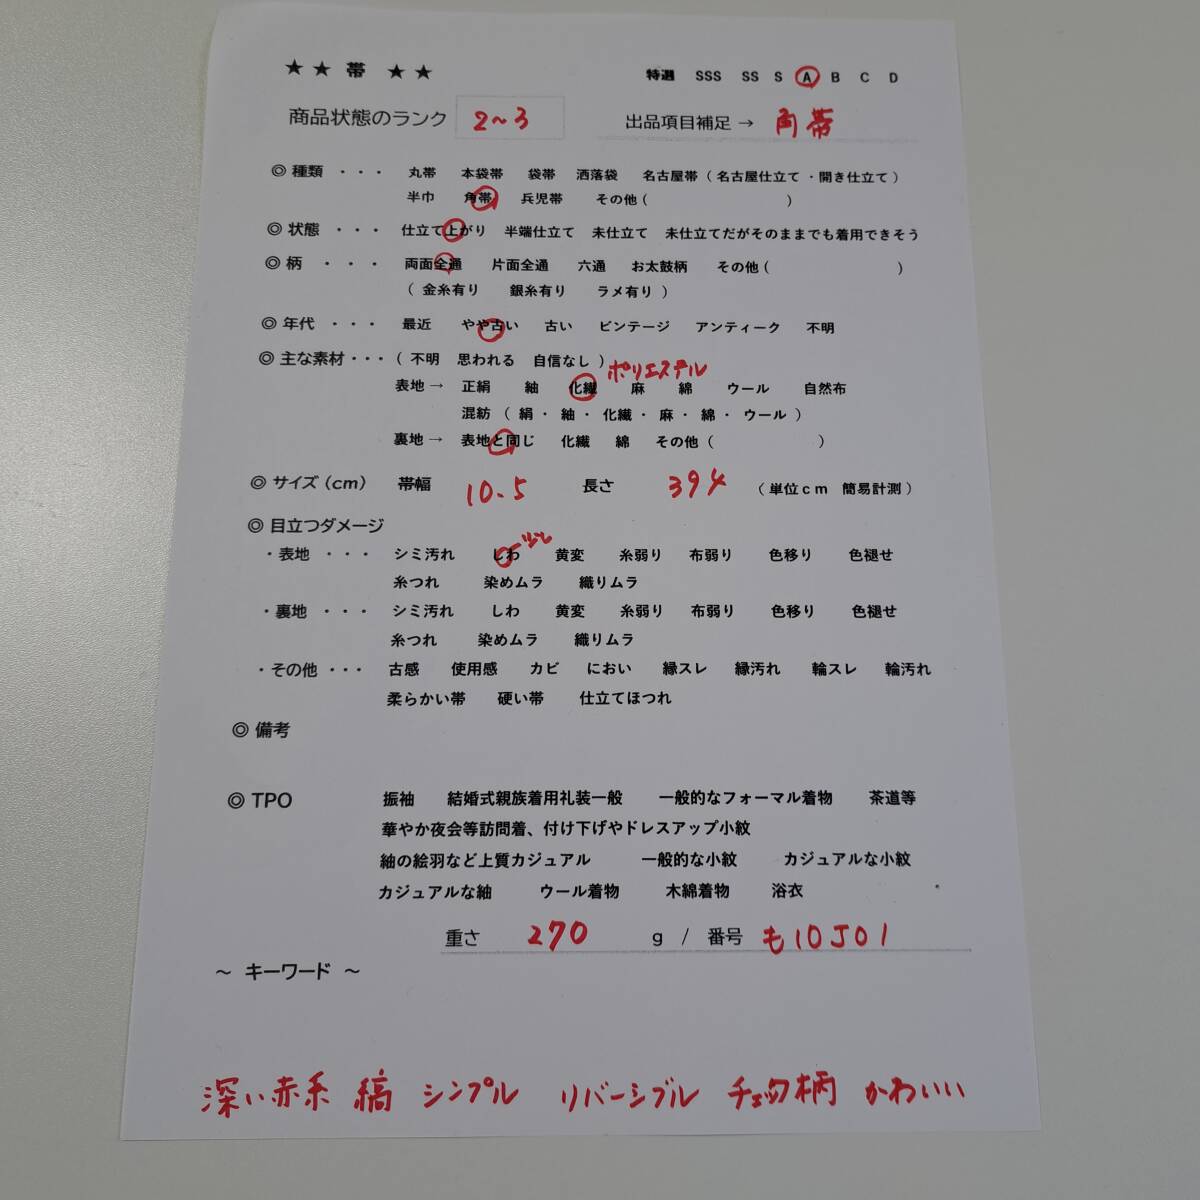 ★ ★ 帯 ★ ★ 特選 SSS SS S A B C D
商品状態のランク 2~3 出品項目補足 → 角帯
◎ 種類 ・・・ 丸帯 本袋帯 袋帯 洒落袋 名古屋帯 ( 名古屋仕立て ・開き仕立て )
半巾 角帯 兵児帯 その他 ( )
◎ 状態 ・・・ 仕立て上がり 半端仕立て 未仕立て 未仕立てだがそのままでも着用できそう
◎ 柄 ・・・ 両面全通 片面全通 六通 お太鼓柄 その他 ( )
( 金糸有り 銀糸有り ラメ有り )
◎ 年代 ・・・ 最近 やや古い 古い ビンテージ アンティーク 不明
◎ 主な素材・・・ ( 不明 思われる 自信なし )
ポリエステル
表地 → 正絹 紬 化繊 麻 綿 ウール 自然布
混紡 ( 絹・ 紬・ 化繊・ 麻・ 綿・ ウール )
裏地 → 表地と同じ 化繊 綿 その他 ( )
◎ サイズ (cm) 帯幅 10.5 長さ 394 ( 単位cm 簡易計測 )
◎ 目立つダメージ
・表地 ・・・ シミ汚れ しわ 少し 黄変 糸弱り 布弱り 色移り 色褪せ
糸つれ 染めムラ 織りムラ
・裏地 ・・・ シミ汚れ しわ 黄変 糸弱り 布弱り 色移り 色褪せ
糸つれ 染めムラ 織りムラ
・その他 ・・・ 古感 使用感 カビ におい 縁スレ 縁汚れ 輪スレ 輪汚れ
柔らかい帯 硬い帯 仕立てほつれ
◎ 備考
◎ TPO 振袖 結婚式親族着用礼装一般 一般的なフォーマル着物 茶道等
華やか夜会等訪問着、付け下げやドレスアップ小紋
紬の絵羽など上質カジュアル 一般的な小紋 カジュアルな小紋
カジュアルな紬 ウール着物 木綿着物 浴衣
重さ 270 g / 番号 も10J01
~ キーワード ~
深い赤系 縞 シンプル リバーシブル チェック柄 かわいい